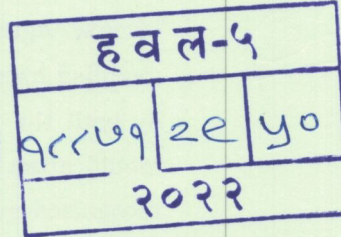 हवल-५
१८८७१ २९ ५०
२०२२